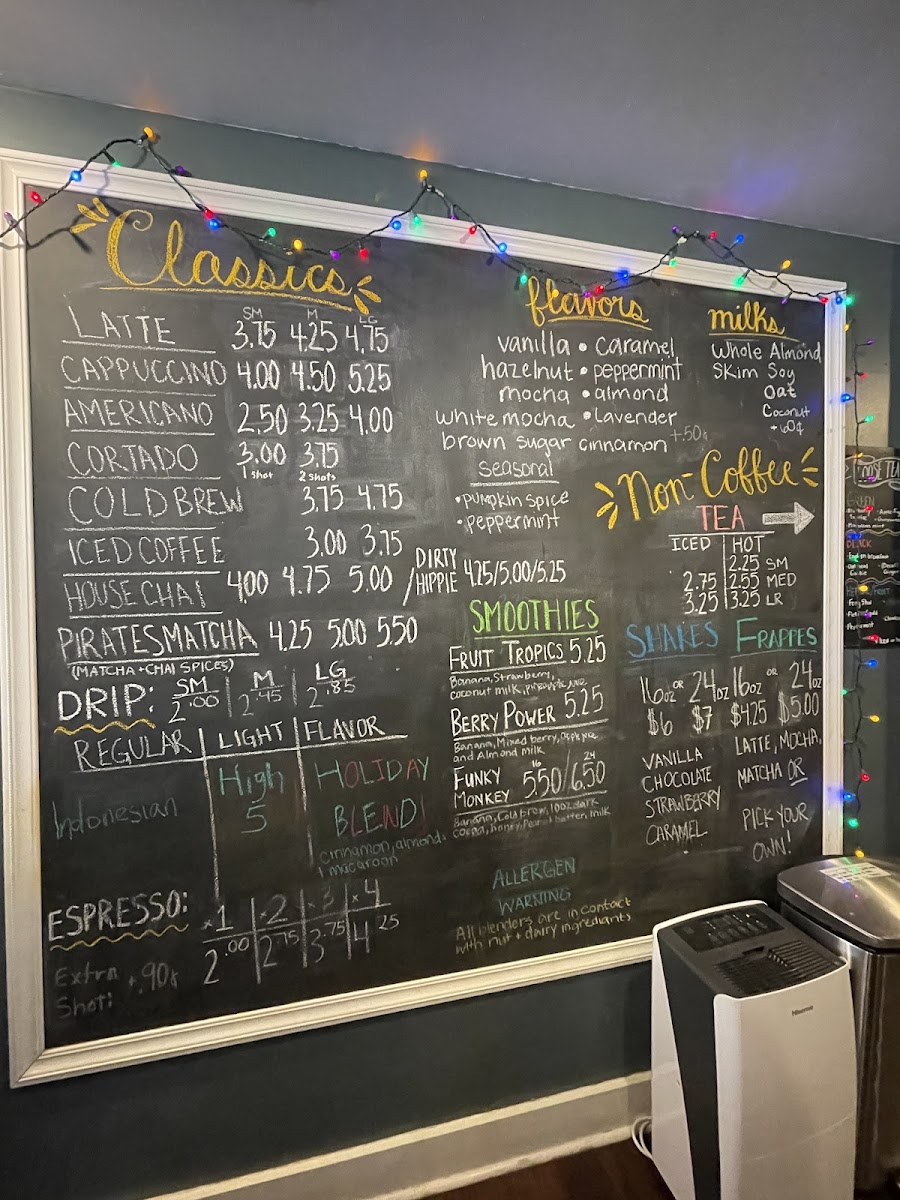 Classics
SM M LG
LATTE 3.75 4.25 4.75
CAPPUCCINO 4.00 4.50 5.25
AMERICANO 2.50 3.25 4.00
CORTADO 3.00 3.75
1 Shot 2 Shots
COLD BREW 3.75 4.75
ICED COFFEE 3.00 3.75
HOUSE CHAI 4.00 4.75 5.00 / DIRTY HIPPIE 4.25/5.00/5.25
PIRATES MATCHA 4.25 5.00 5.50
(MATCHA + CHAI SPICES)
DRIP: SM M LG
2.00 2.45 2.85
REGULAR LIGHT FLAVOR
Indonesian
High
5
HOLIDAY
BLEND!
cinnamon, almonds
+ macaroon
ESPRESSO: x1 x2 x3 x4
2.00 2.75 3.75 4.25
Extra +.90¢
Shot:
flavors
vanilla • caramel
hazelnut • peppermint
mocha • almond
white mocha • Lavender
brown sugar cinnamon +.50¢
seasonal
• PUMPKIN SPICE
• PEPPERMINT
milks
Whole Almond
Skim Soy
Oat
Coconut
+60¢
Non-Coffee
TEA
ICED HOT
2.25 SM
2.75 2.55 MED
3.25 3.25 LR
SMOOTHIES
FRUIT TROPICS 5.25
Banana, Strawberry,
coconut milk, pineapple juice
BERRY POWER 5.25
Banana, Mixed berry,
and Almond milk
FUNKY 16 24
MONKEY 5.50/6.50
Banana, Cold brew, 100% dark
cocoa, honey, Peanut butter, milk
ALLERGEN
WARNING
All blenders are in contact
with nut + dairy ingredients
SHAKES
16oz OR 24oz
$6 $7
VANILLA
CHOCOLATE
STRAWBERRY
CARAMEL
FRAPPES
16oz OR 24oz
$4.25 $5.00
LATTE, MOCHA,
MATCHA OR
PICK YOUR
OWN!
GREEN
BLACK
Hisense